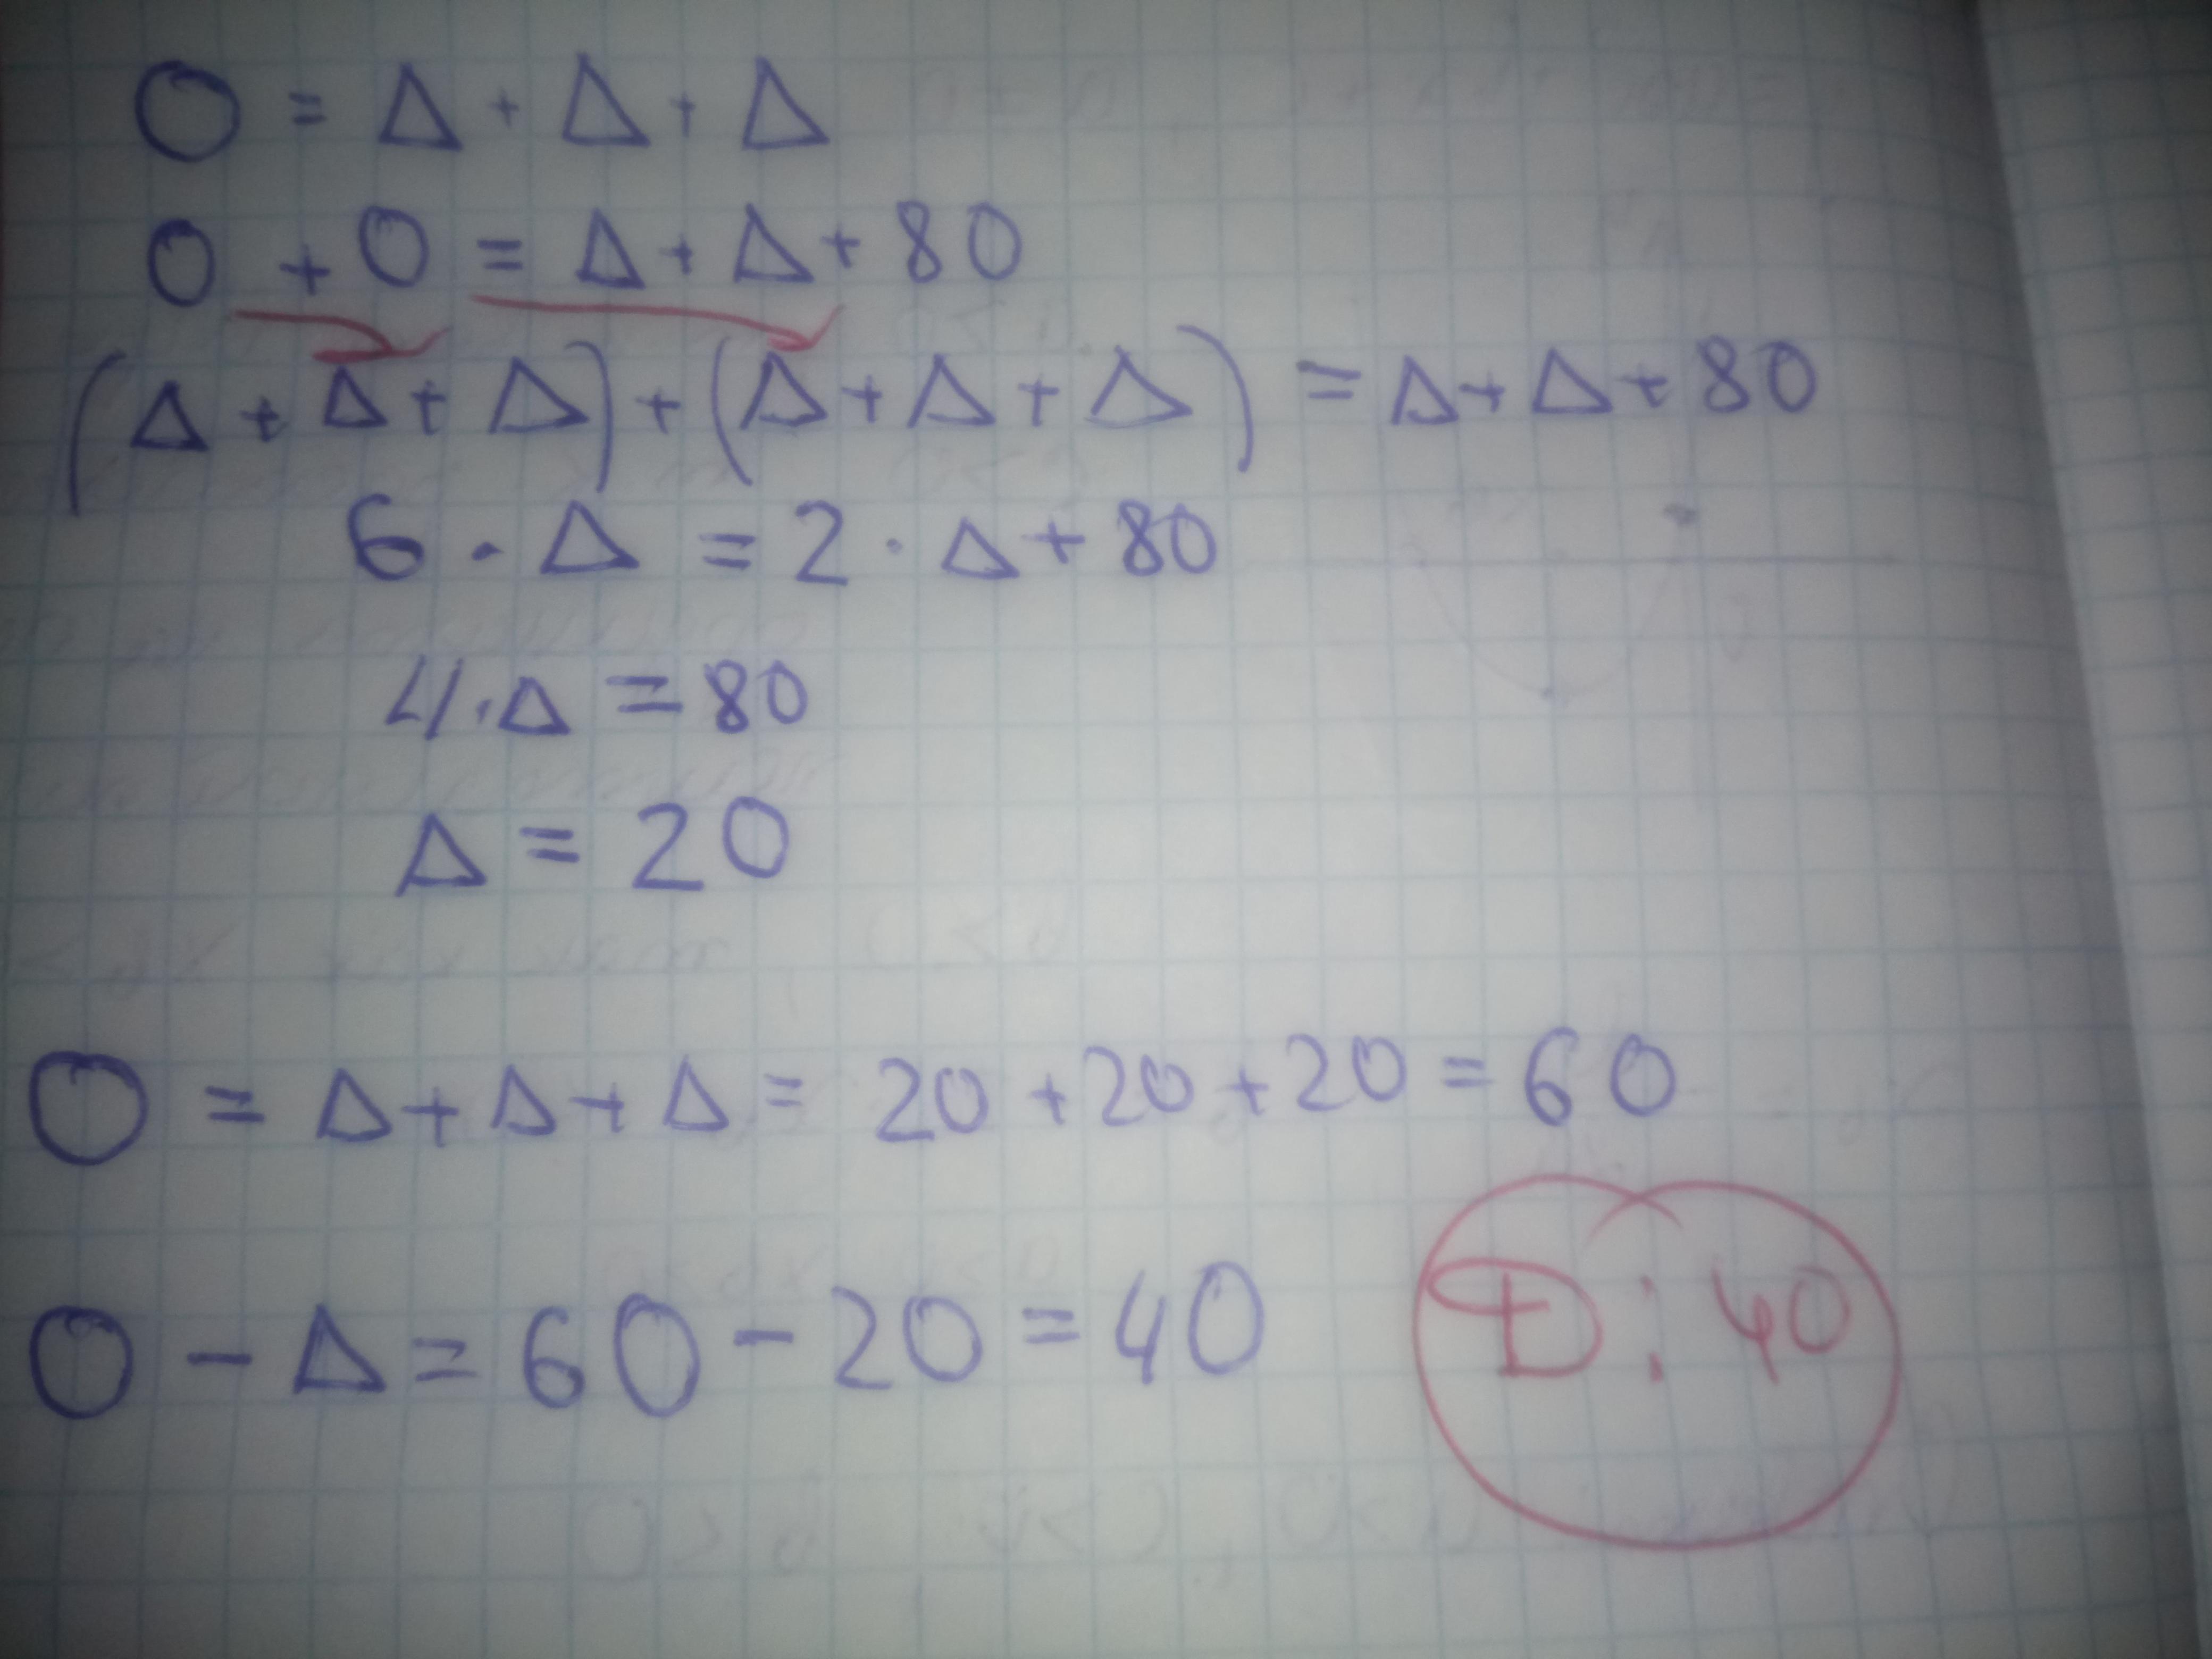 O = Δ + Δ + Δ
O + O = Δ + Δ + 80
(Δ + Δ + Δ) + (Δ + Δ + Δ) = Δ + Δ + 80
6 · Δ = 2 · Δ + 80
4 · Δ = 80
Δ = 20
O = Δ + Δ + Δ = 20 + 20 + 20 = 60
O - Δ = 60 - 20 = 40
D: 40